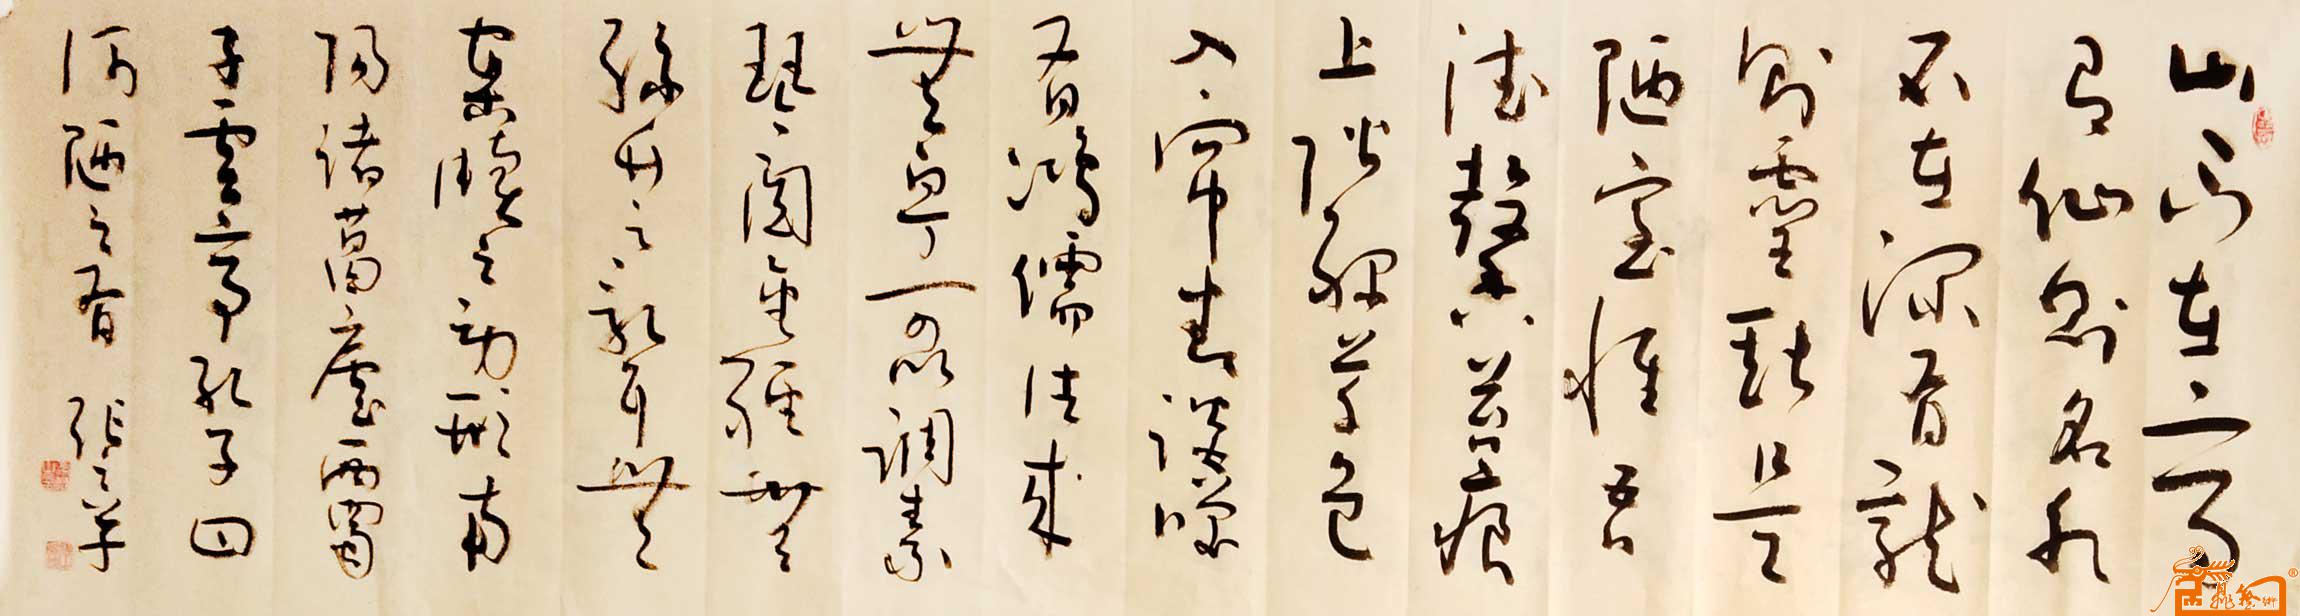 山不在高
有仙則名水
不在深有龍
則靈斯是
陋室惟吾
德馨苔痕
上階綠草色
入簾青談笑
有鴻儒往來
無白丁可以調素
琴閱金經無
絲竹之亂耳無
案牘之勞形南
陽諸葛廬西蜀
子雲亭孔子曰
何陋之有 張草